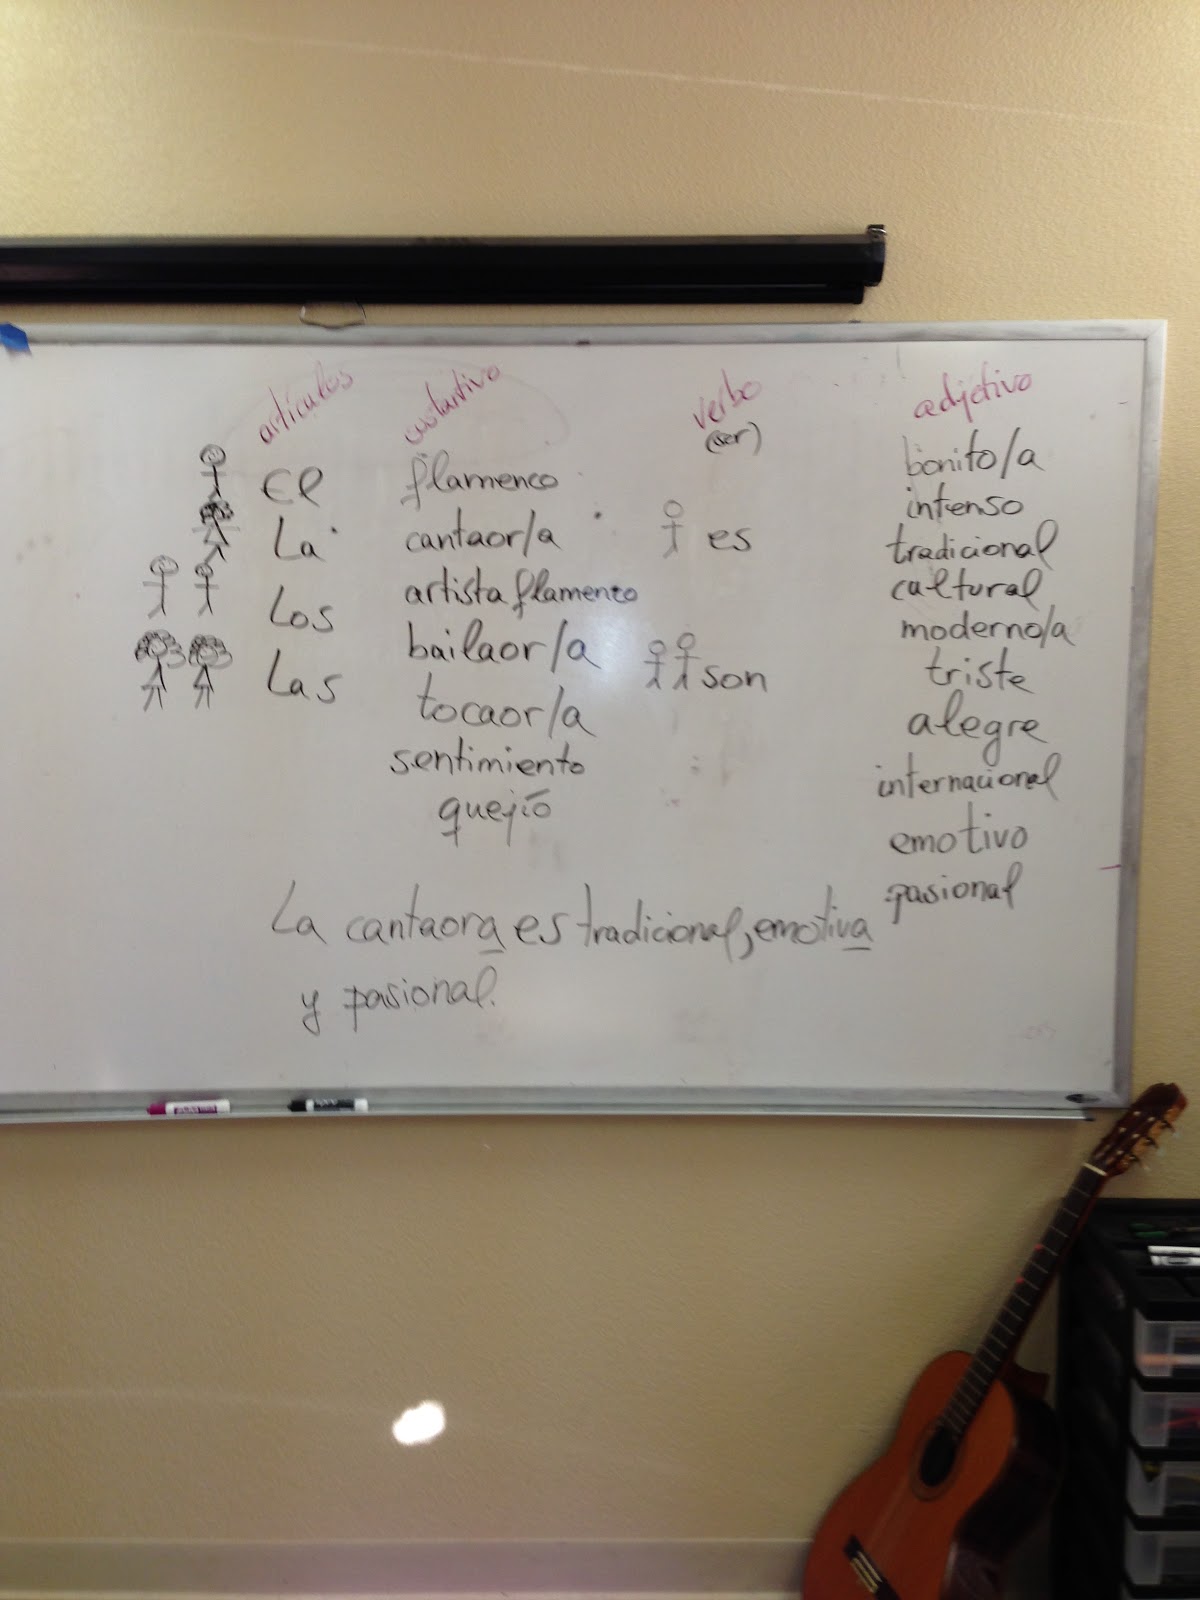 artículos sustantivo verbo adjetivo
(ser)
El flamenco bonito/a
La cantaor/a es intenso
Los artista flamenco tradicional
Las bailaor/a son cultural
tocaor/a moderno/a
sentimiento triste
quejío alegre
internacional
emotivo
pasional
La cantaora es tradicional, emotiva
y pasional.